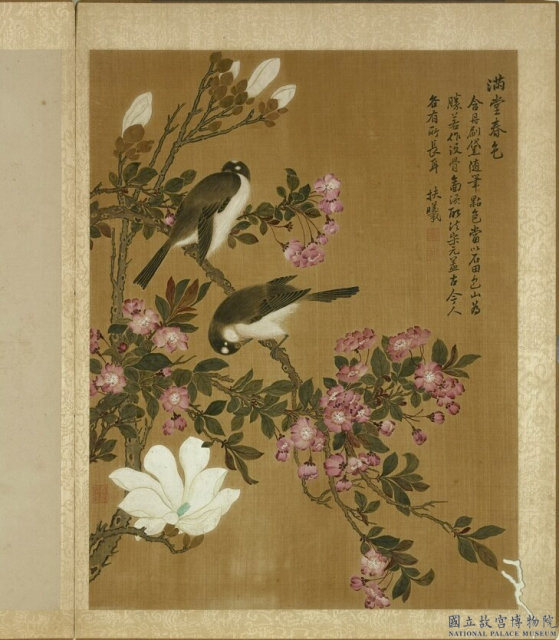 滿堂春色
含丹刷黛隨筆點色當以石田包山為
勝若作沒骨圖須取法宋元蓋古今人
各有所長耳 扶曦
國立故宮博物院
NATIONAL PALACE MUSEUM